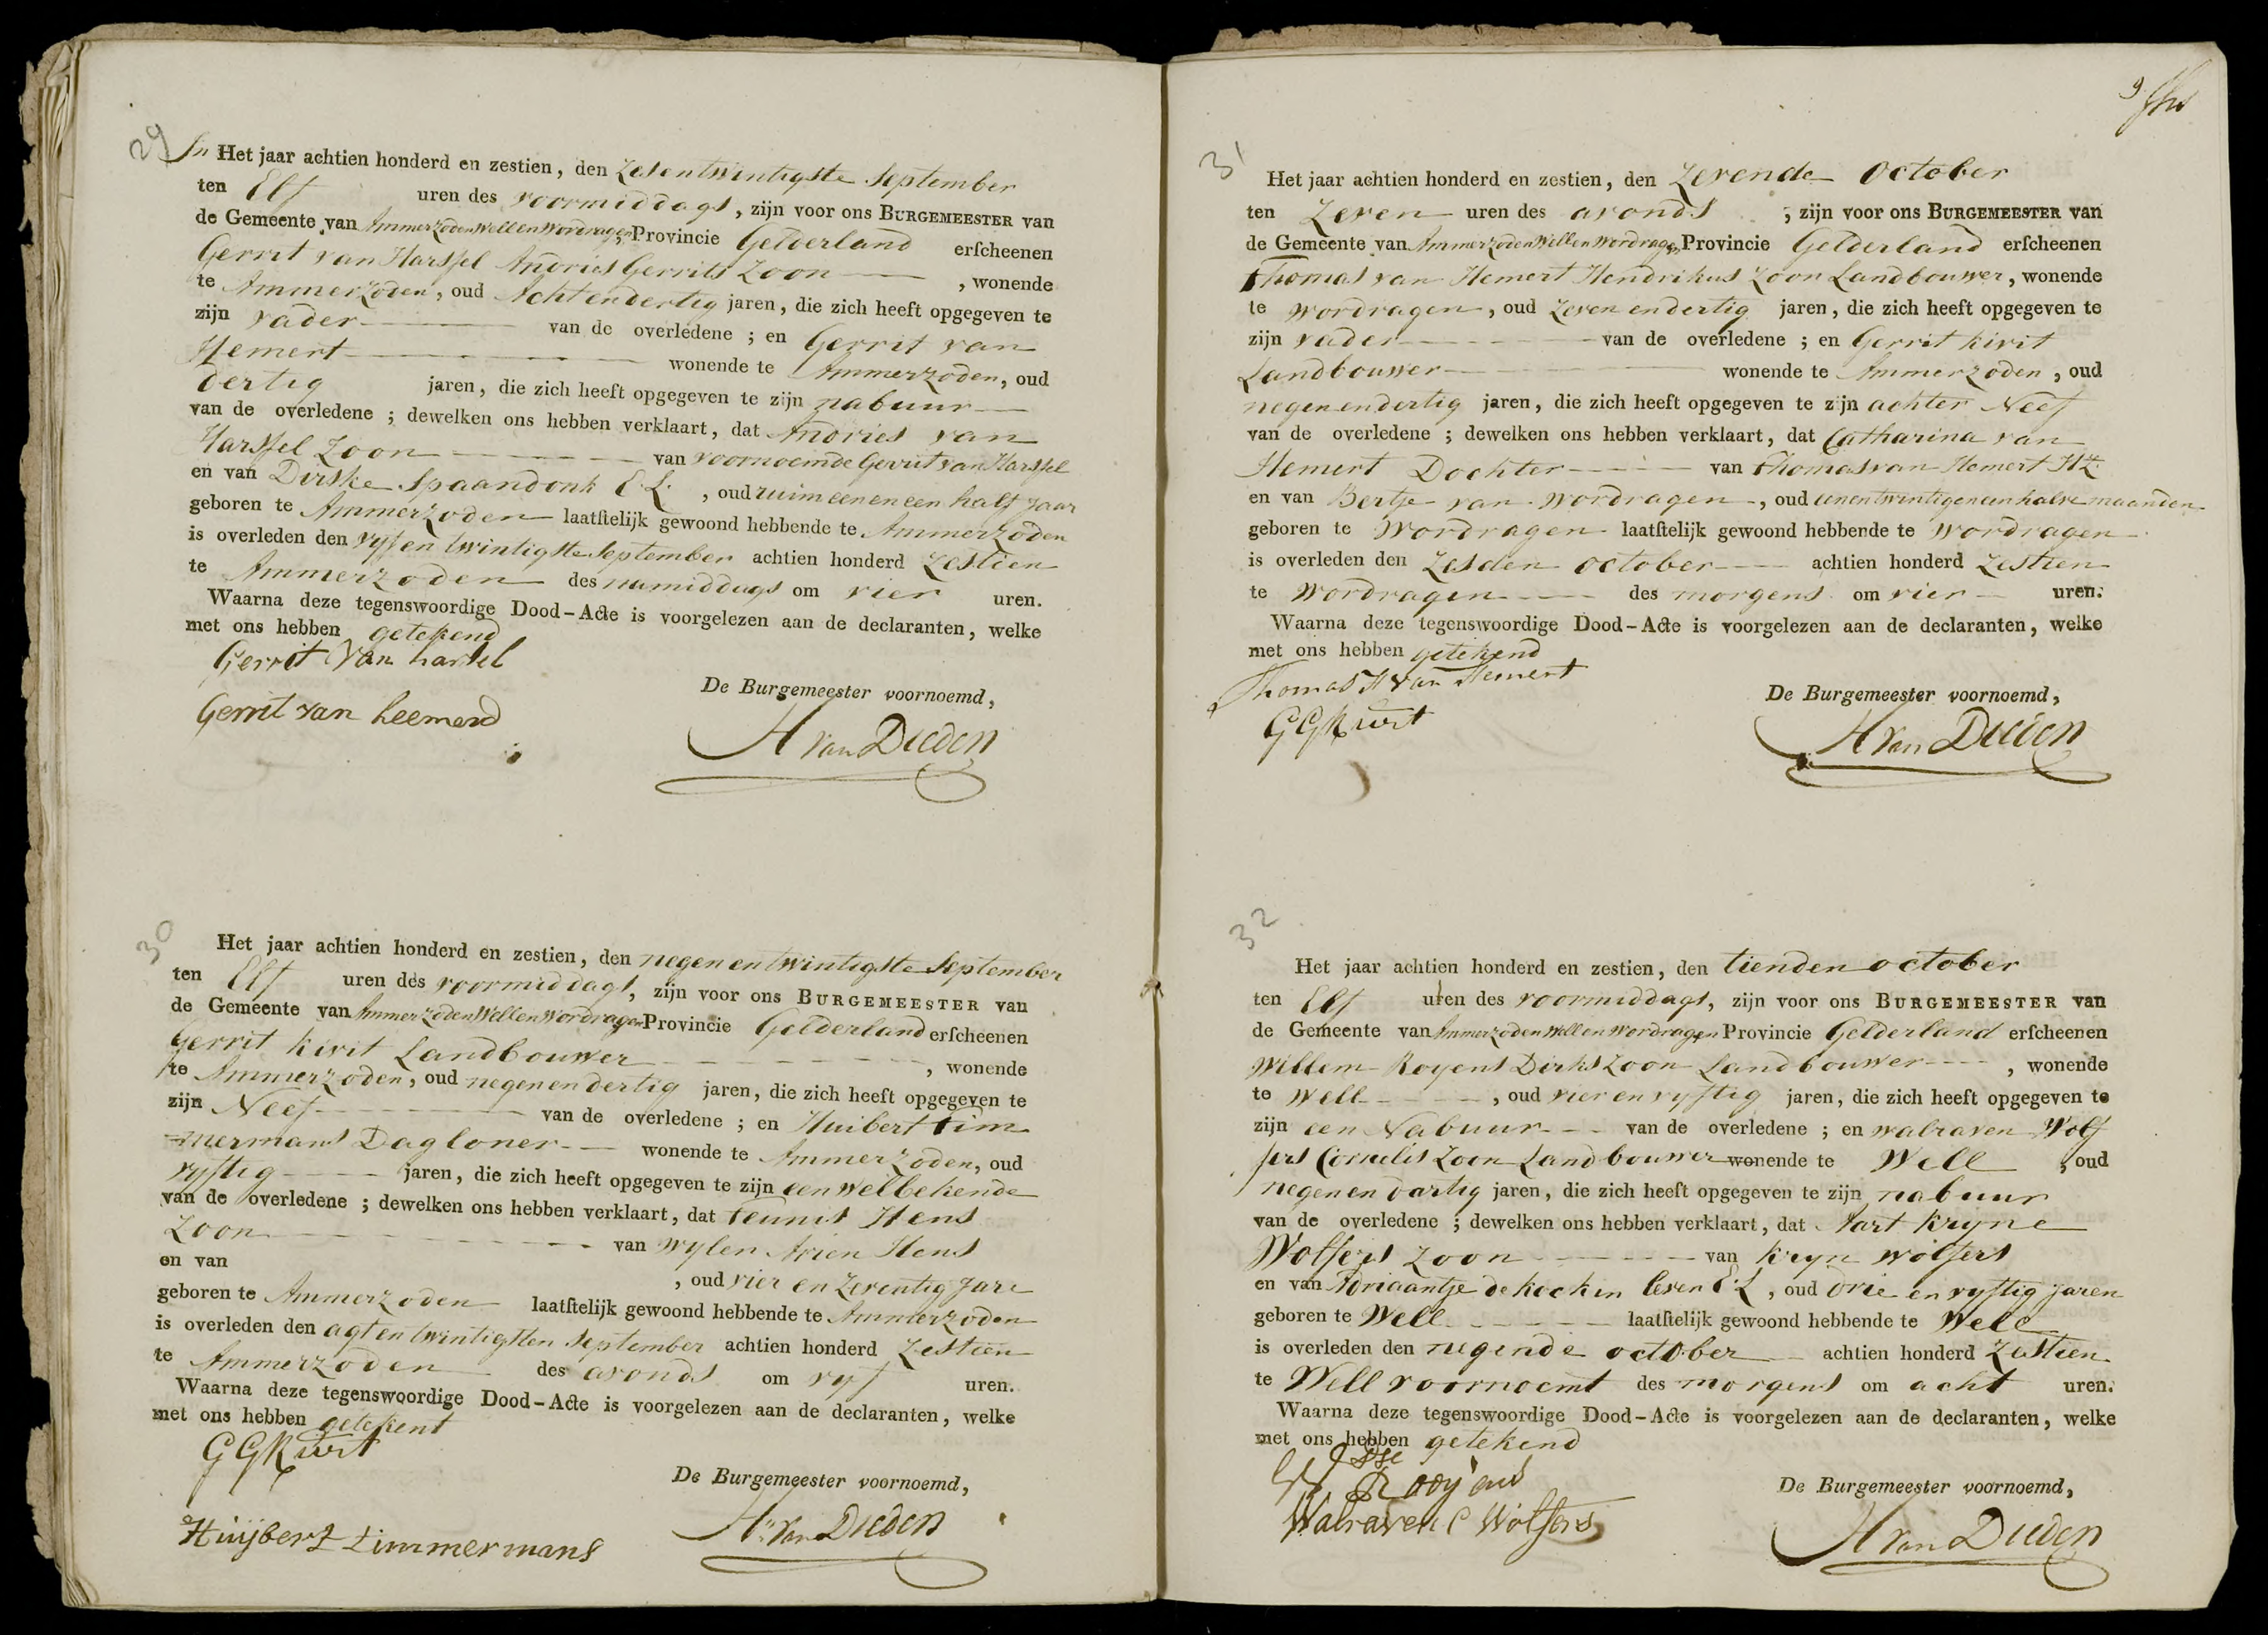 29
In Het jaar achtien honderd en zestien, den Zesentwintigste September
ten Elf uren des voormiddags, zijn voor ons BURGEMEESTER van
de Gemeente van Ammerzoden Well en Wordragen Provincie Gelderland erſcheenen
Gerrit van Harssel Andries Gerrits Zoon , wonende
te Ammerzoden, oud Achtendertig jaren, die zich heeft opgegeven te
zijn vader van de overledene ; en Gerrit van
Hemert wonende te Ammerzoden, oud
dertig jaren, die zich heeft opgegeven te zijn nabuur
van de overledene ; dewelken ons hebben verklaart, dat Andries van
Harssel Zoon van voornoemde Gerrit van Harssel
en van Dirske Spaandonk E.L. , oud ruim een en een half Jaar
geboren te Ammerzoden laatſtelijk gewoond hebbende te Ammerzoden
is overleden den vyfentwintigste September achtien honderd Zestien
te Ammerzoden des namiddags om vier uren.
Waarna deze tegenswoordige Dood-Acte is voorgelezen aan de declaranten, welke
met ons hebben getekend
Gerrit van harsel
Gerrit van heemerd
De Burgemeester voornoemd,
H van Dieden
30
Het jaar achtien honderd en zestien, den negenentwintigste September
ten Elf uren des voormiddags, zijn voor ons BURGEMEESTER van
de Gemeente van Ammerzoden Well en Wordragen Provincie Gelderland erſcheenen
Gerrit Kivit Landbouwer , wonende
te Ammerzoden, oud negenendertig jaren, die zich heeft opgegeven te
zijn Neef van de overledene ; en Huibert tim
mermans Dagloner wonende te Ammerzoden, oud
vyftig jaren, die zich heeft opgegeven te zijn een welbekende
van de overledene ; dewelken ons hebben verklaart, dat teunis Hens
Zoon van wylen Arien Hens
en van , oud vier en Zeventig Jare
geboren te Ammerzoden laatſtelijk gewoond hebbende te Ammerzoden
is overleden den agtentwintigsten September achtien honderd Zestien
te Ammerzoden des avonds om vyf uren.
Waarna deze tegenswoordige Dood-Acte is voorgelezen aan de declaranten, welke
met ons hebben getekent
G G Kivit
Huijbert timmermans
De Burgemeester voornoemd,
H van Dieden
9
31
Het jaar achtien honderd en zestien, den Zevende October
ten Zeven uren des avonds , zijn voor ons BURGEMEESTER van
de Gemeente van Ammerzoden Well en Wordragen Provincie Gelderland erſcheenen
Thomas van Hemert Hendrikus Zoon Landbouwer, wonende
te Wordragen, oud Zeven endertig jaren, die zich heeft opgegeven te
zijn vader van de overledene ; en Gerrit Kivit
Landbouwer wonende te Ammerzoden, oud
negenendertig jaren, die zich heeft opgegeven te zijn achter Neef
van de overledene ; dewelken ons hebben verklaart, dat Catharina van
Hemert Dochter van thomas van Hemert Hz
en van Bertje van Wordragen, oud eenentwintigeneenhalve maanden
geboren te Wordragen laatſtelijk gewoond hebbende te Wordragen
is overleden den Zesden october achtien honderd Zestien
te Wordragen des morgens om vier uren.
Waarna deze tegenswoordige Dood-Acte is voorgelezen aan de declaranten, welke
met ons hebben getekend
Thomas H van Hemert
G G Kivit
De Burgemeester voornoemd,
H van Dieden
32
Het jaar achtien honderd en zestien, den tienden october
ten Elf uren des voormiddags, zijn voor ons BURGEMEESTER van
de Gemeente van Ammerzoden Well en Wordragen Provincie Gelderland erſcheenen
Willem Royens Dirks Zoon Landbouwer , wonende
te Well , oud vier en vyftig jaren, die zich heeft opgegeven te
zijn een Nabuur van de overledene ; en walraven Wolf
fers Cornelis Zoon Landbouwer wonende te Well , oud
negenendartig jaren, die zich heeft opgegeven te zijn nabuur
van de overledene ; dewelken ons hebben verklaart, dat Aart Kryne
Wolfers Zoon van Kryn wolfers
en van Adriaantje de Kock in leven E.L , oud drie en vyftig jaren
geboren te Well laatſtelijk gewoond hebbende te Well
is overleden den negende october achtien honderd Zestien
te Well voornoemt des morgens om acht uren.
Waarna deze tegenswoordige Dood-Acte is voorgelezen aan de declaranten, welke
met ons hebben getekend
Rooyens
Walraven C Wolfers
De Burgemeester voornoemd,
H van Dieden